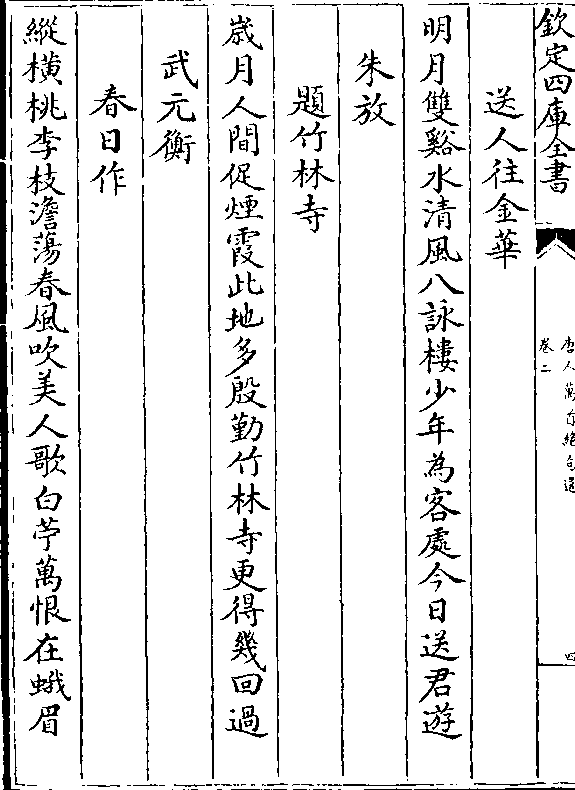 欽定四庫全書
唐人萬首絶句選
卷二
四
送人往金華
明月雙谿水清風八詠樓少年為客處今日送君遊
朱放
題竹林寺
歲月人間促煙霞此地多殷勤竹林寺更得幾回過
武元衡
春日作
縱橫桃李枝澹蕩春風吹美人歌白苧萬恨在蛾眉